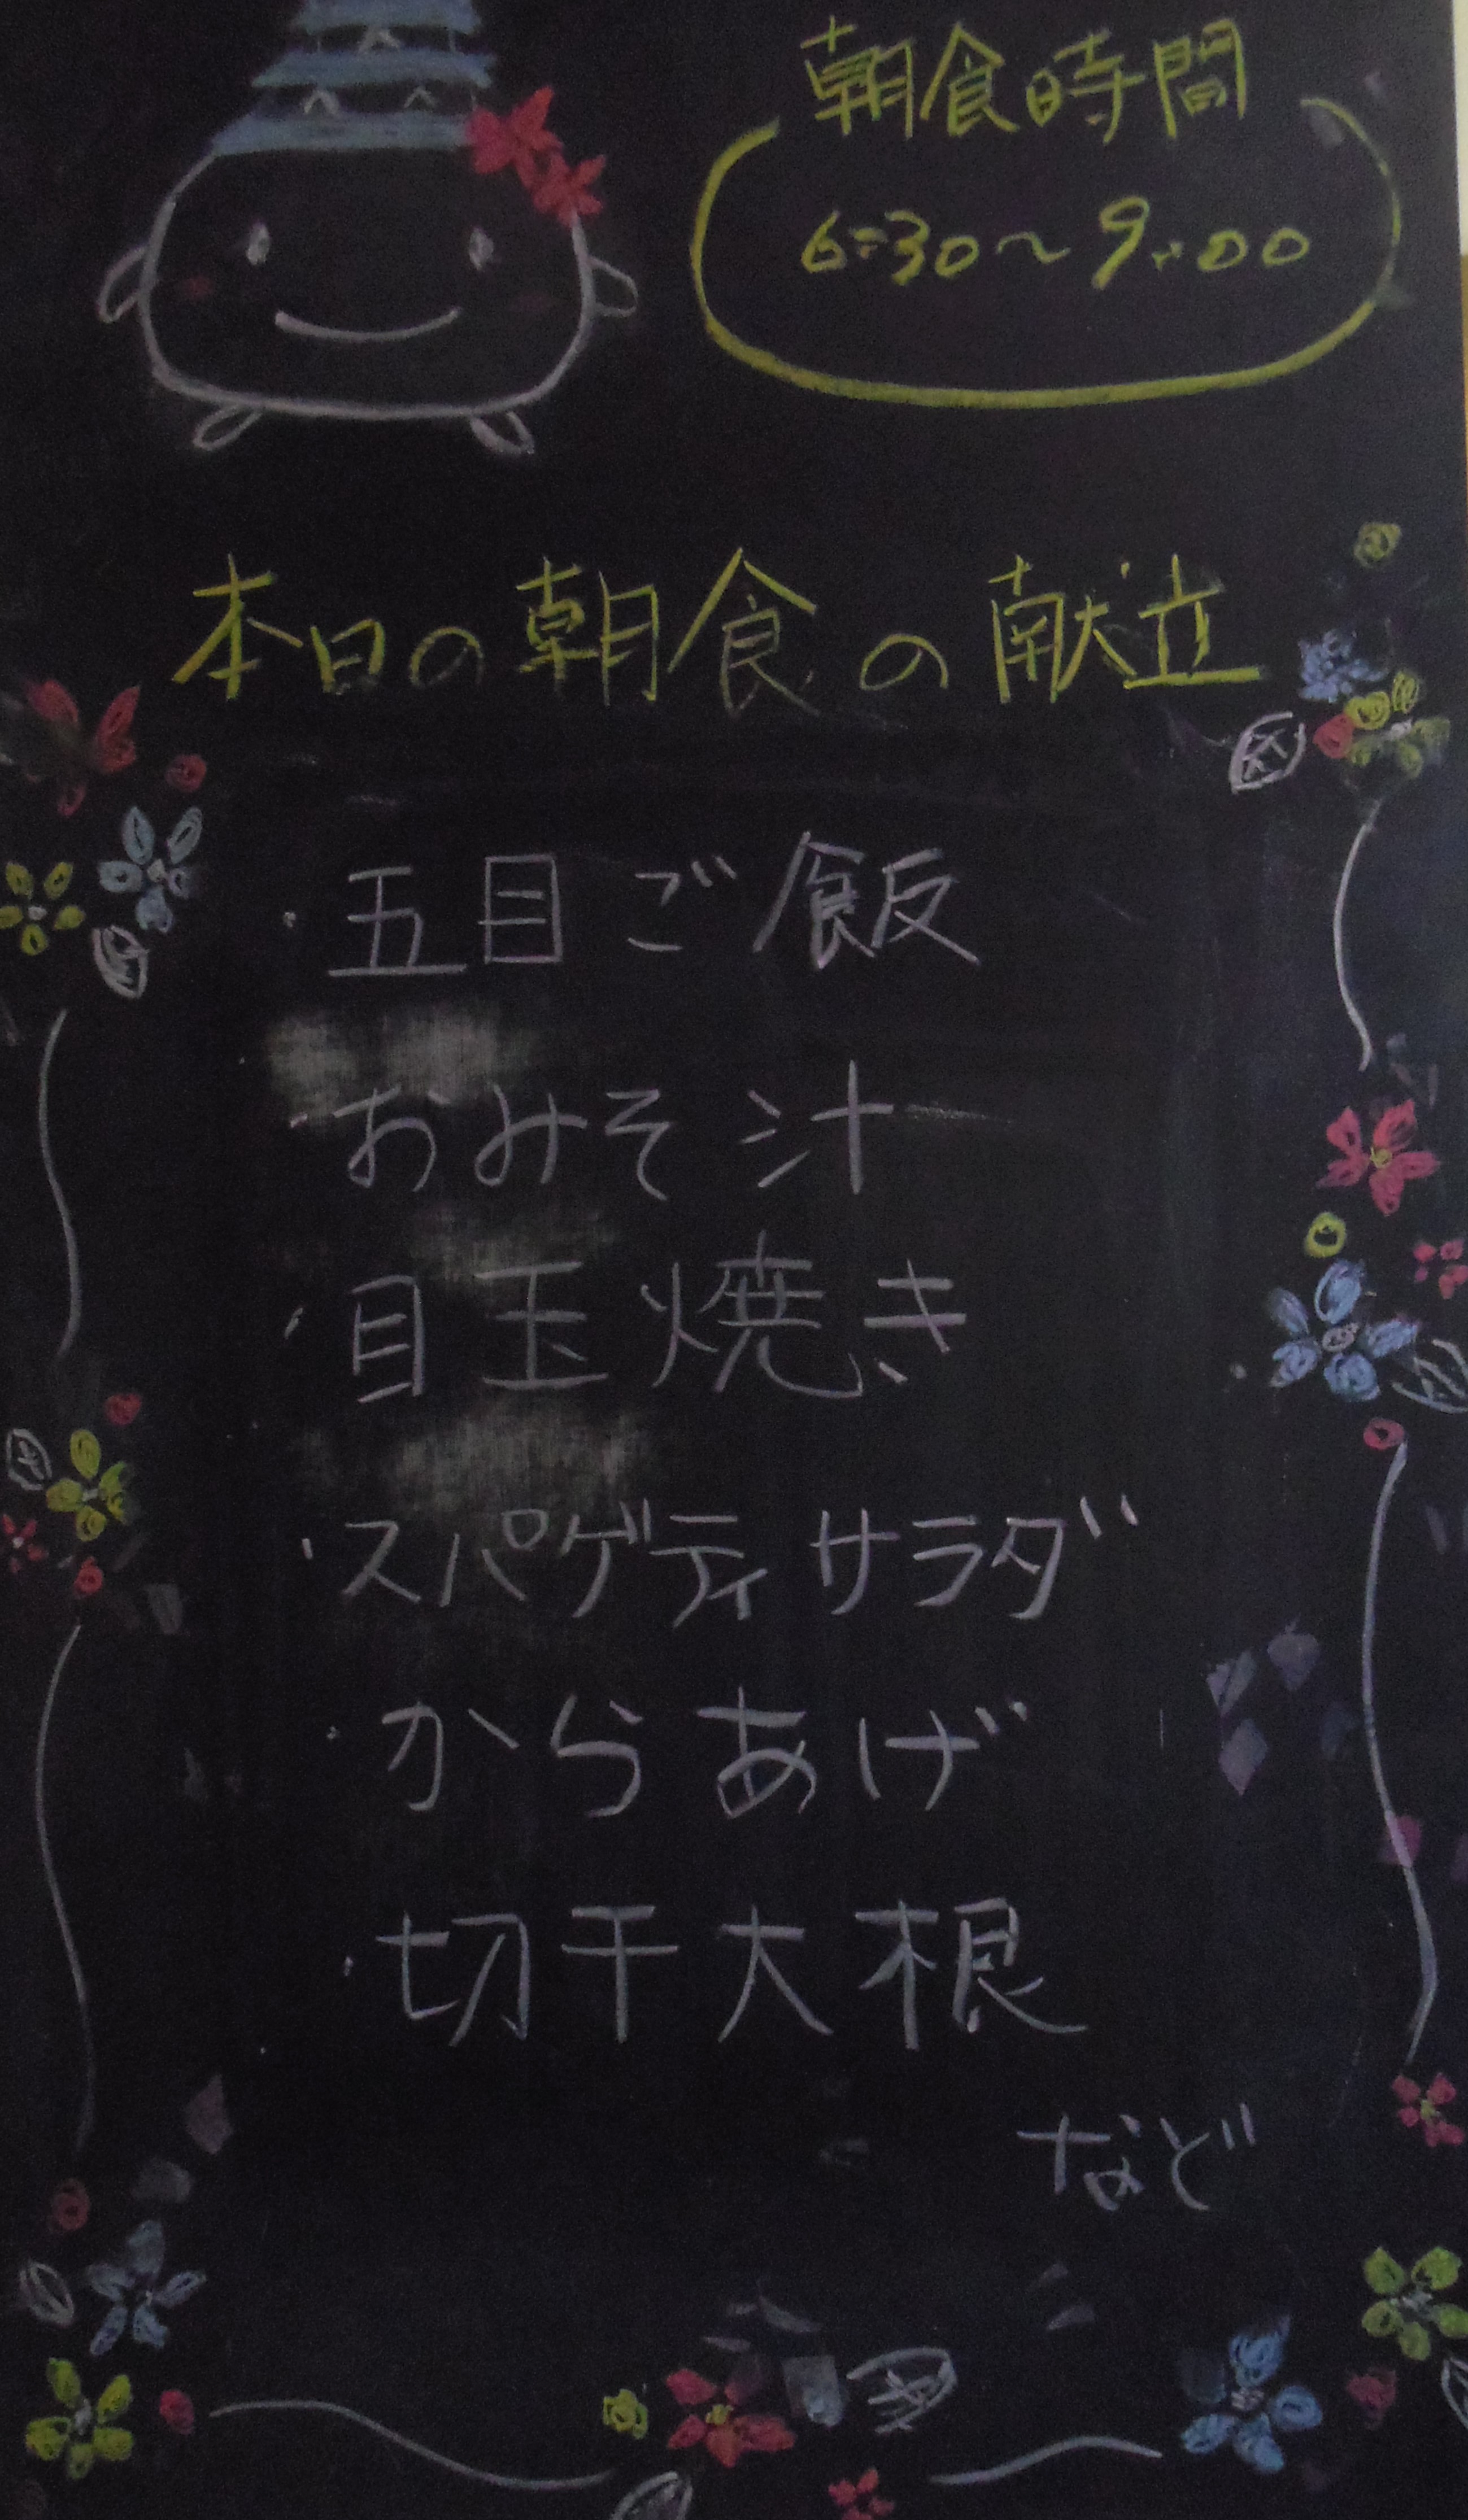 朝食時間
6:30〜9:00
本日の朝食の献立
・五目ご飯
・おみそ汁
・目玉焼き
・スパゲティサラダ
・からあげ
・切干大根
など